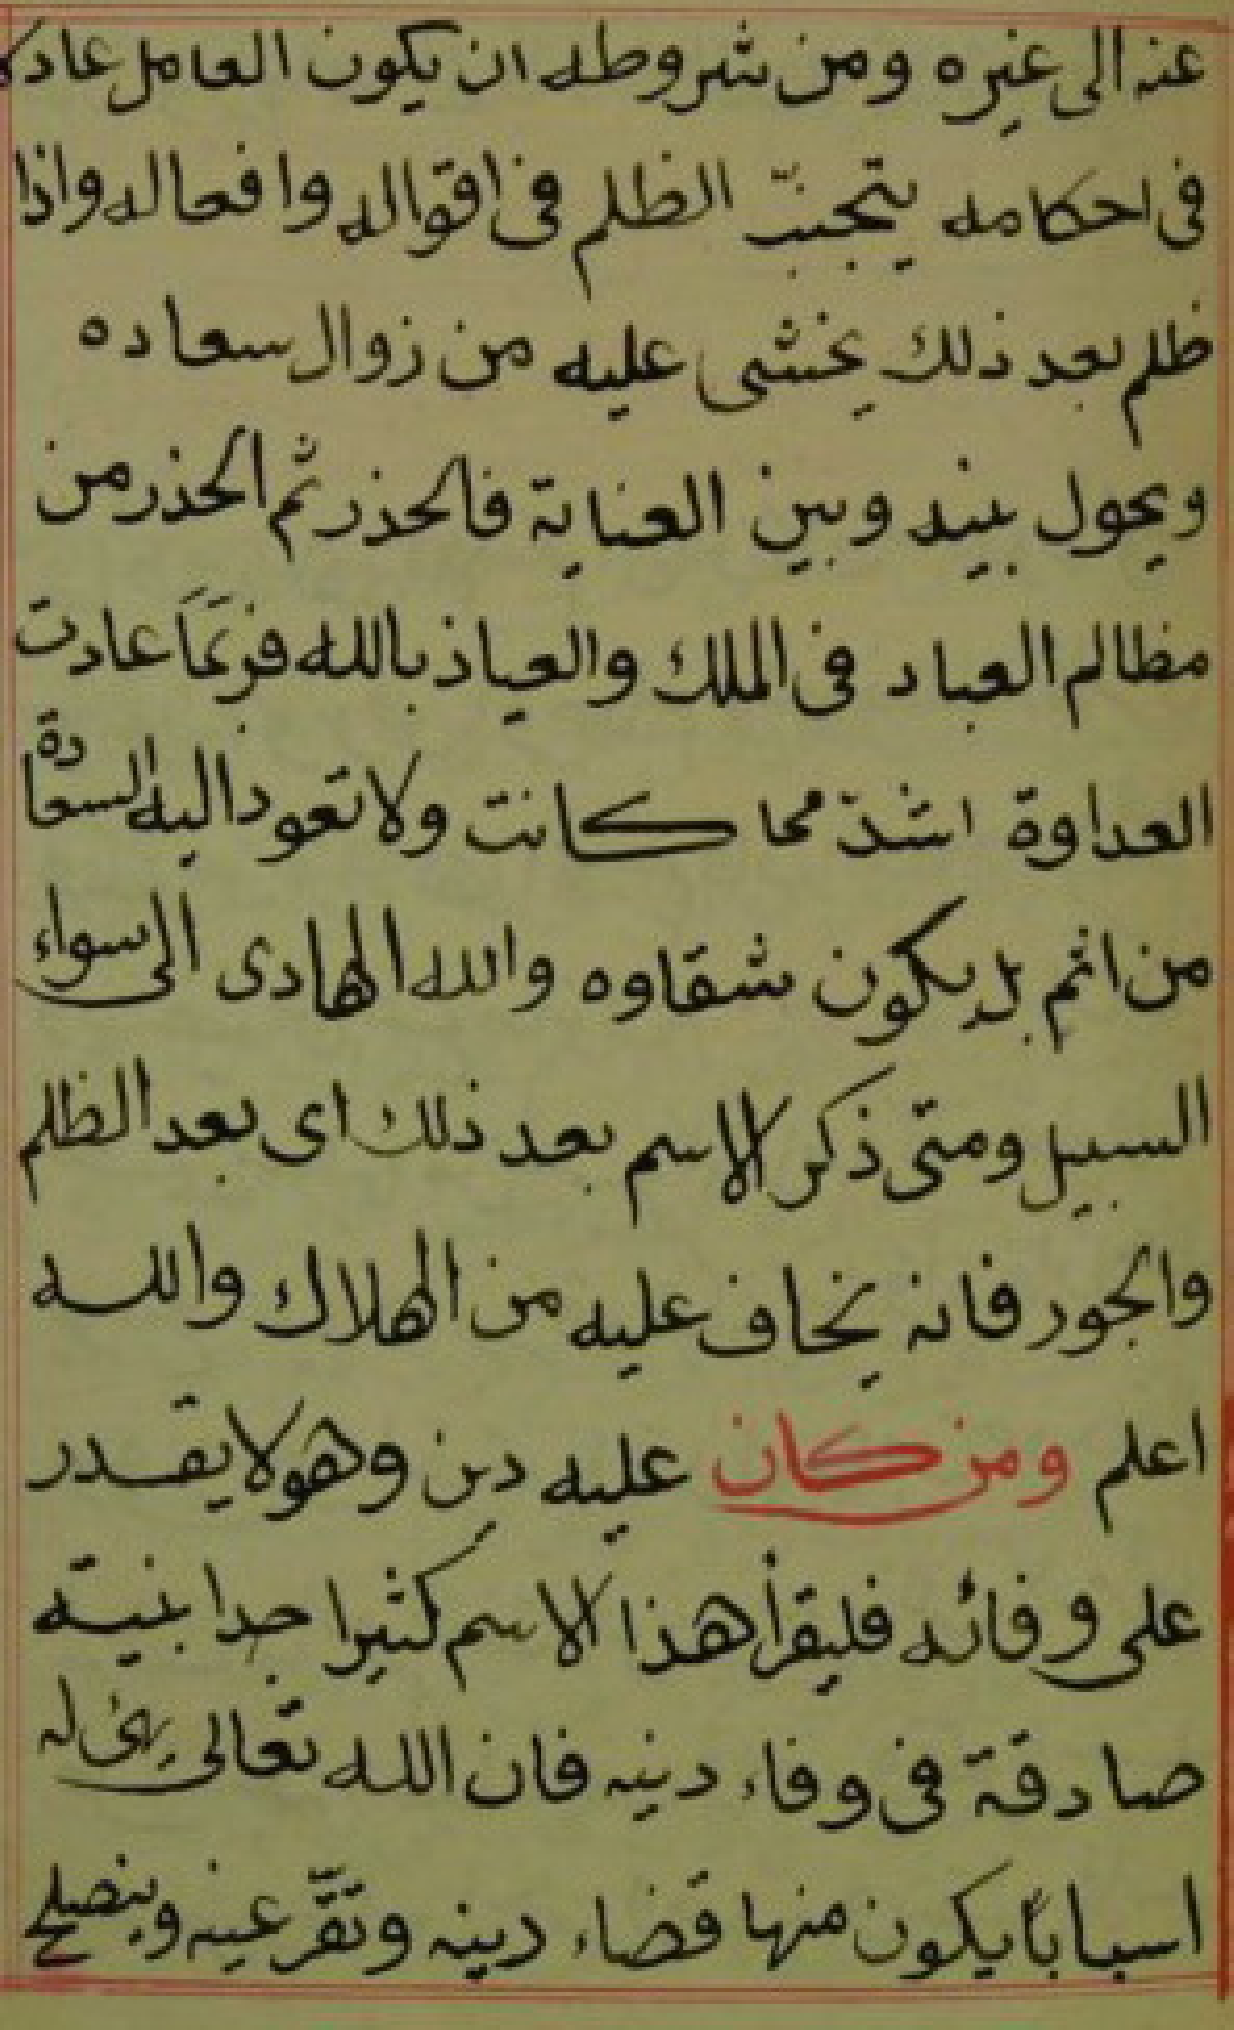 عنه الى غيره ومن شروطه ان يكون العامل عادلا
فى احكامه يتجنبّ الظلم فى اقواله وافعاله واذا
ظلم بعد ذلك يخشى عليه من زوال سعاده
ويحول بينه وبين العناية فالحذر ثم الحذر من
مظالم العباد فى الملك والعياذ بالله فربمَا عادت
العداوة اشدّ مما كانت ولا تعود اليه السعادة
من اثم بل يكون شقاوه والله الهادى الى سواء
السبيل ومتى ذكر الاسم بعد ذلك اى بعد الظلم
والجور فانه يخاف عليه من الهلاك والله
اعلم ومن كان عليه دين وهو لا يقدر
على وفائه فليقرأ هذا الاسم كثيرا جدا بنية
صادقة فى وفاء دينه فان الله تعالى له
اسباباً يكون منها قضاء دينه وتقرّ عينه وينصلح